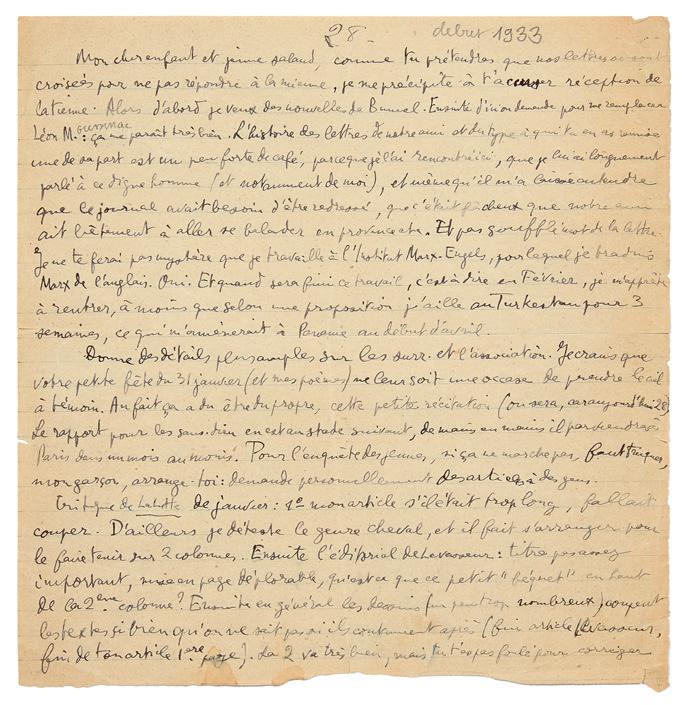 28 - debut 1933
Mon cher enfant et jeune salaud, comme tu prétendras que nos lettres se sont
croisées pour ne pas répondre à la mienne, je me précipite à t'accuser réception de
la tienne. Alors d'abord je veux des nouvelles de Bunuel. Ensuite d'ici on demande pour me remplacer
Léon Moussinac : ça me paraît très bien. L'histoire des lettres de notre ami et du type à qui tu en as remise
une de sa part est un peu forte de café, parce que je l'ai remontré ici, que je lui ai longuement
parlé à ce digne homme (et notamment de moi), et même qu'il m'a laissé entendre
que le journal avait besoin d'être redressé, que c'était fâcheux que notre ami
ait bêtement à aller se balader en province etc. Et pas soufflé mot de la lettre.
Je ne te ferai pas mystère que je travaille à l'Institut Marx-Engels, pour lequel je traduis
Marx de l'anglais. Oui. Et quand sera fini ce travail, c'est à dire en Février, je m'apprête
à rentrer, à moins que selon une proposition j'aille au Turkestan pour 3
semaines, ce qui m'amènerait à Paname au début d'avril.
Donne des détails plus amples sur les surr. et l'association. Je crains que
votre petite fête du 31 janvier (et mes poèmes) ne leur soit une occase de prendre le ciel
à témoin. Au fait ça a du être du propre, cette petite récitation (ou sera, car aujourd'hui 28)
Le rapport pour les sans-dieu en est au stade suivant, de mains en mains il parviendra à
Paris dans un mois au moins. Pour l'enquête des jeunes, si ça ne marche pas, faut truquer,
mon garçon, arrange-toi: demande personnellement des articles à des gens.
Critique de la lutte de janvier : 1º mon article s'il était trop long, fallait
couper. D'ailleurs je déteste le genre cheval, et il fait s'arranger pour
le faire tenir sur 2 colonnes. Ensuite l'éditorial de Levasseur : titre pas assez
important, mise en page déplorable, qu'est ce que ce petit "béquet" en haut
de la 2ème colonne? Ensuite en général les dessins (un peu trop nombreux) coupent
les textes si bien qu'on ne sait pas où ils continuent après (fin article Levasseur,
fin de ton article 1ère page). La 2 va très bien, mais tu t'es pas foulé pour corriger